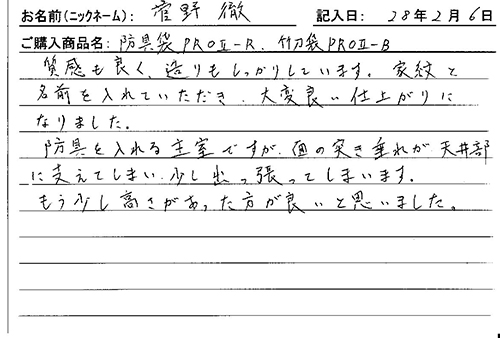 お名前(ニックネーム): 菅野 徹 記入日: 28年2月6日
ご購入商品名: 防具袋PROⅡ-R、竹刀袋PROⅡ-B
質感も良く、造りもしっかりしています。家紋と
名前を入れていただき、大変良い仕上がりに
なりました。
防具を入れる主室ですが、面の突き垂れが天井部
に支えてしまい、少し出っ張ってしまいます。
もう少し高さがあった方が良いと思いました。